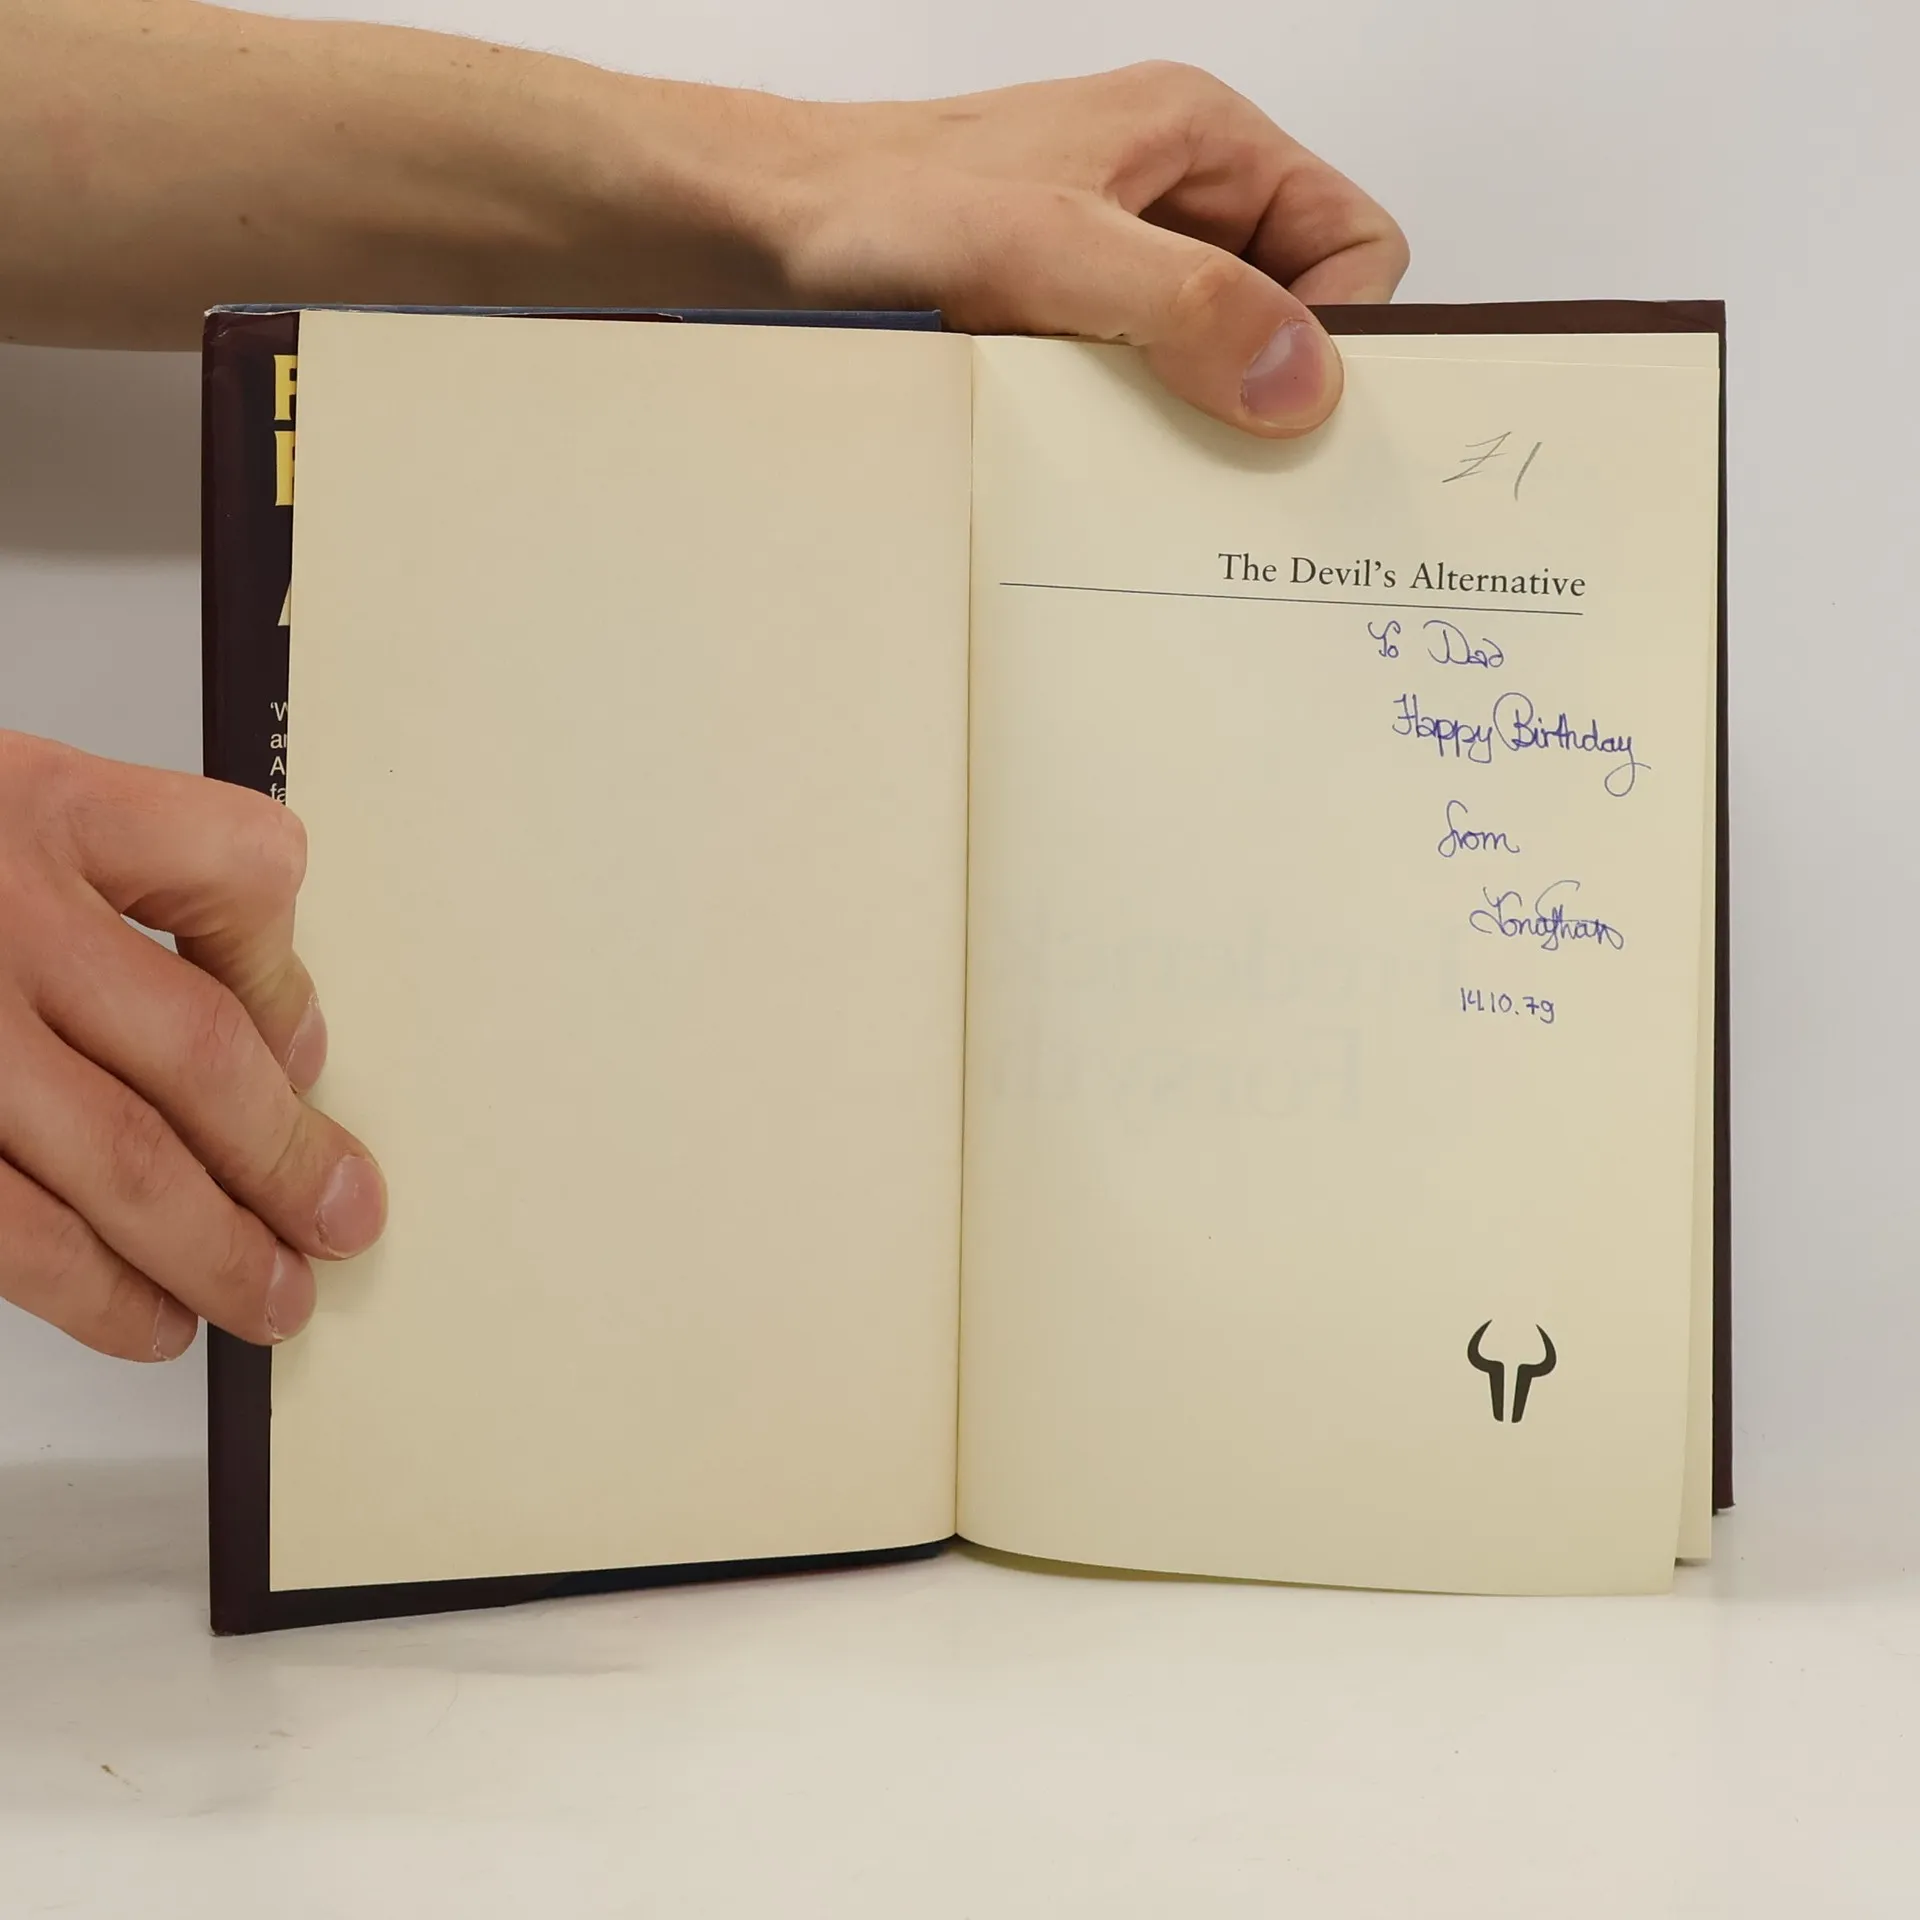 F
F
A
'W
an
A
fa
£1
The Devil's Alternative
To Dad
Happy Birthday
from
Jonathan
14.10.79